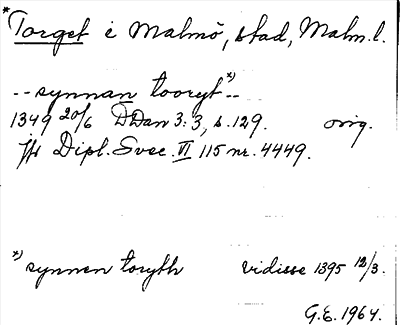 * Torget i Malmö, stad, Malm. l.
-- synnan tooryt *) --
1349 20/6 DDan 3:3, s. 129. orig.
jfr Dipl. Svec. VI 115 nr. 4449.
*) synnen toryth vidisse 1395 12/3.
G.E. 1964.